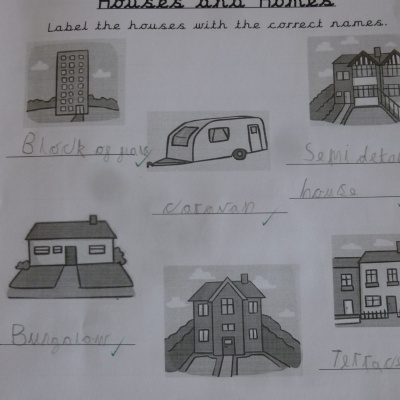 Houses and Homes
Label the houses with the correct names.
Block of
Semi
house
caravan
Bungalow